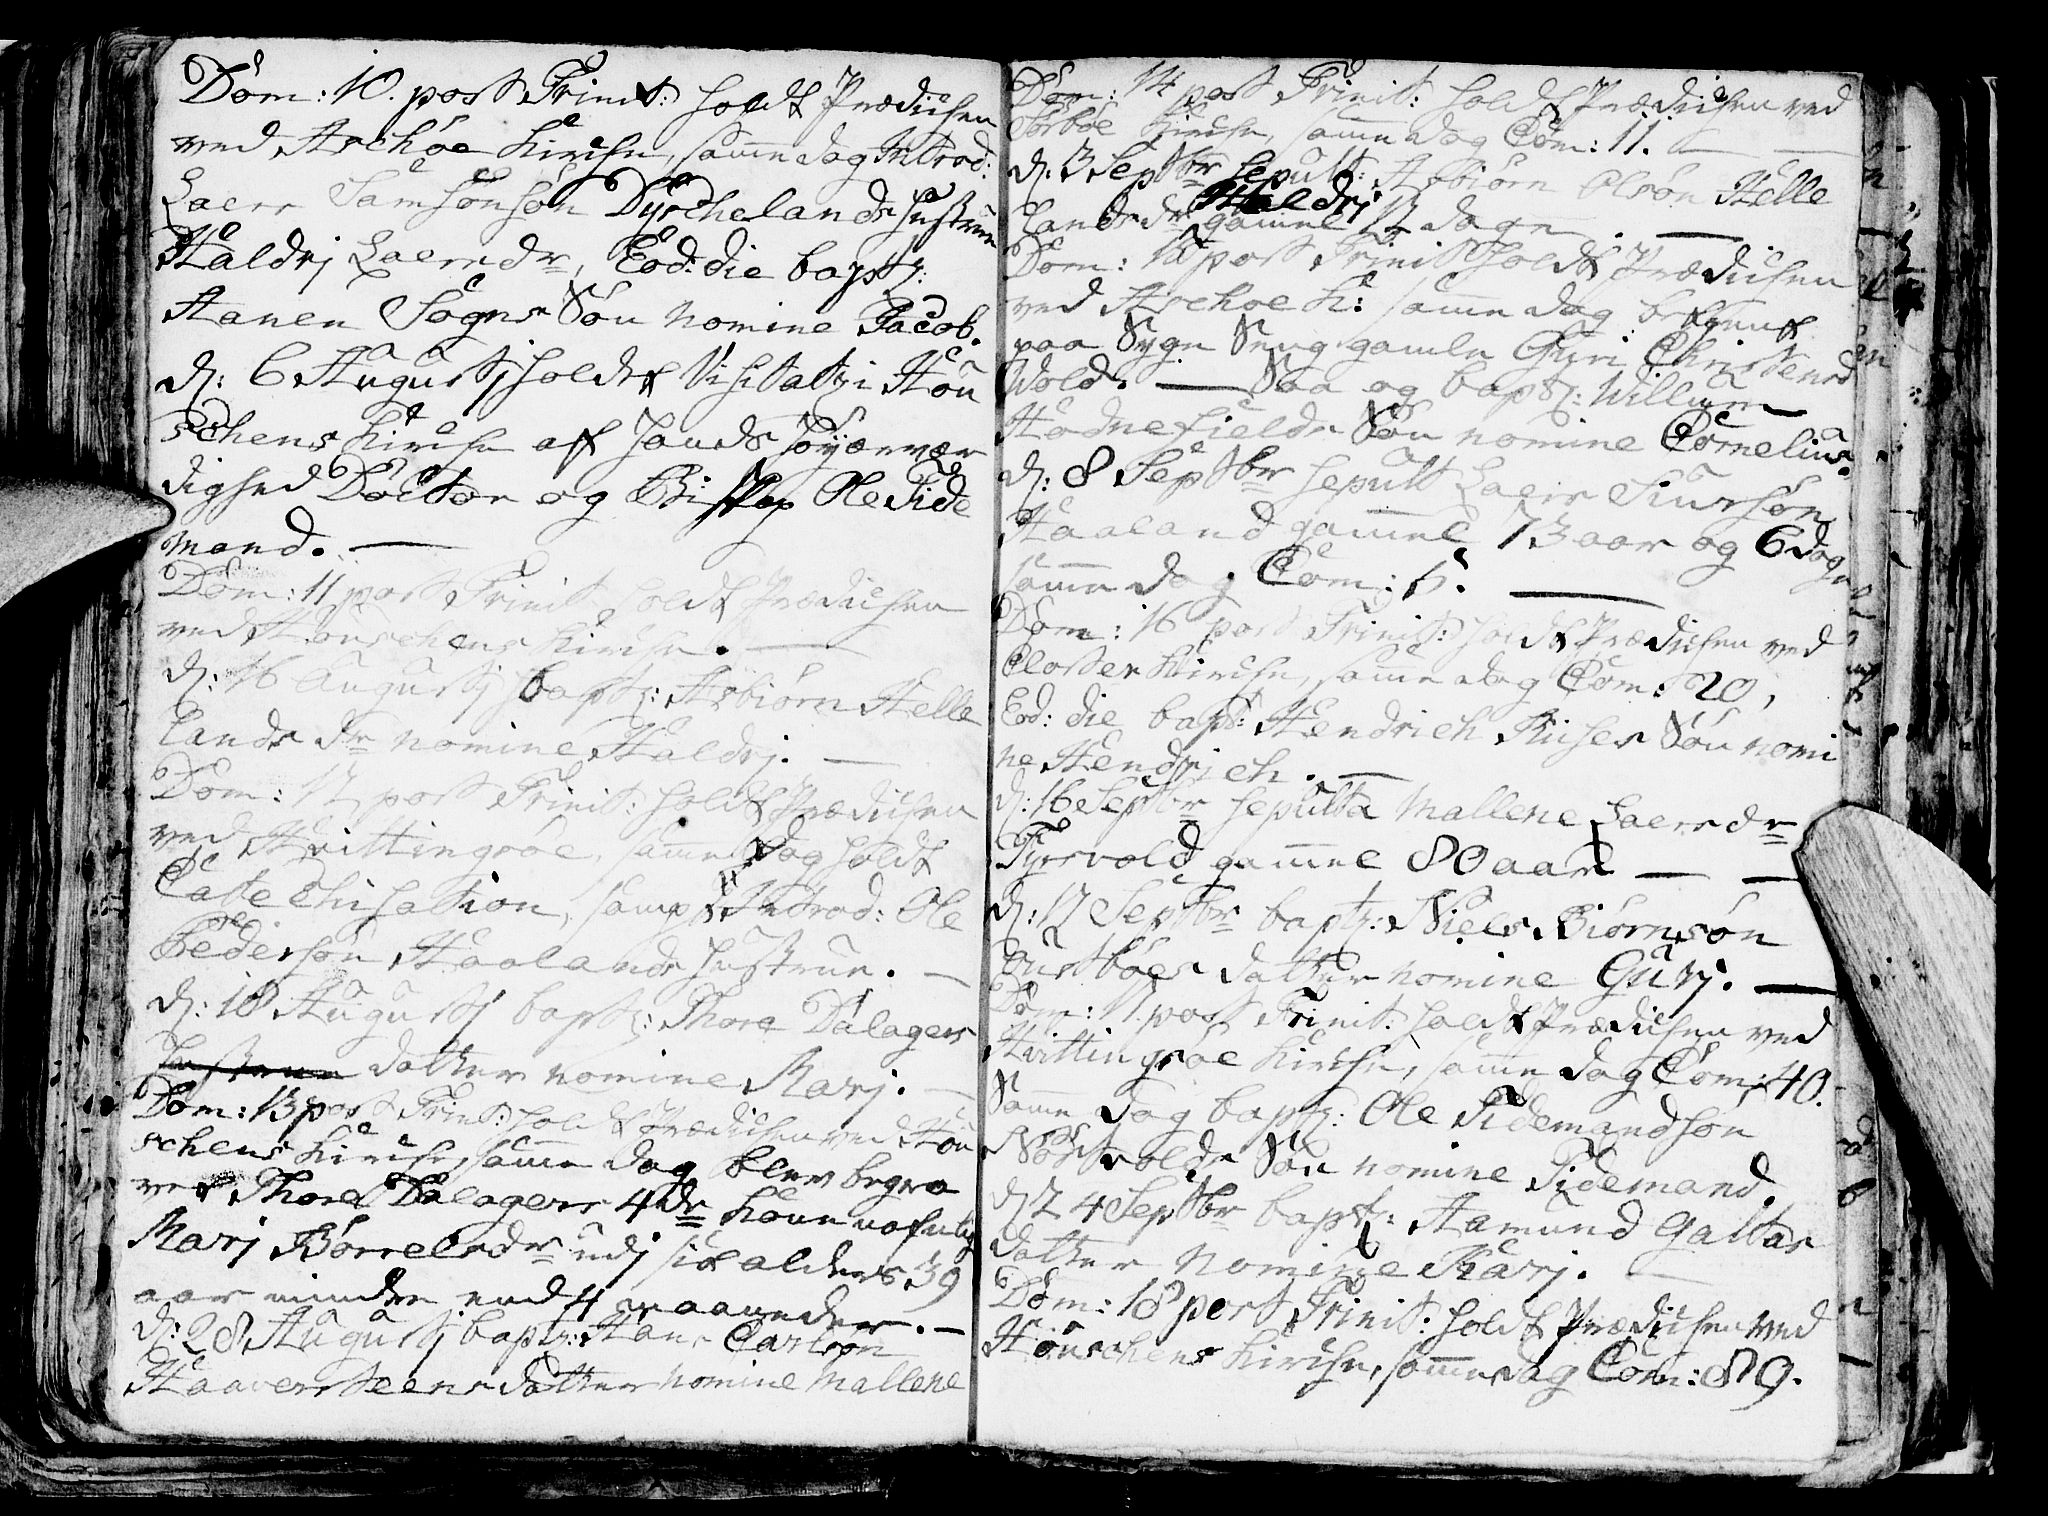 Dom: 10. post Trinit: holdt Prædichen
ved Aschöe Kirche, samme dag Introd:
Laers Samsonsön Dyschelands hustrue
Haldrj Laersdr, Eod: die bapt:
Aanen Sogns Sön nomine Jacob.
d: 6 Augustj holdt Visitatz i Hou
schens Kirche af hands höyærvær
dighed Doctor og Biskop Ole Tide
mand. —
Dom: 11 post Trinit holdt Prædichen
ved Houschens Kirche. —
d: 16 Augustj bapt: Asbiörn Helle
lands dr nomine Haldrj. —
Dom: 12 post Trinit: holdt Prædichen
ved Hvittingsöe, samme dag holdt
Catechisation, samt Introd: Ole
Pedersön Haalands hustrue. —
d: 18 Augustj bapt: Thore Dalagers
hustrue datter nomine Marj. —
Dom: 13 post Trinit: holdt Prædichen ved Hou
schens Kirche, samme dag blev begra
vet Thore Dalagers 4de Kone nafnlig
Marj Börrelsdr udj sit alders 39
aar mindre end 4 maaneder. —
d: 28 Augustj bapt: Hans Carlsön
Haaversteens datter nomine Mallene
Dom: 14 post Trinit: holdt Prædichen ved
Sörböe Kirche, samme dag Com: 11. —
d: 3 Septbr sepult: Asbiörn Olsön Helle
lands dr Haldrj gamel 12 dage. —
Dom: 15 post Trinit holdt Prædichen
ved Aschoe K: samme dag betient
paa Syge Seng gamle Guri Christensd
Wold. — Saa og bapt: Willum
Hodnefields Sön nomine Cornelius.
d: 8 Septbr sepult Laers Siursön
Haaland gammel 73 aar og 6 dage
samme dag Com: 5. —
Dom: 16 post Trinit: holdt Prædichen ved
Closter Kirche, samme dag Com: 20,
Eod: die bapt: Hendrich Kuses Sön nomi
ne Hendrich. —
d: 16 Septbr sepulta Mallene Laersdr
Tyrsvold gammel 80 aar — —
d: 17 Septbr bapt: Niels Biörnsön
Austböes datter nomine Gurj. —
Dom: 17. post Trinit: holdt Prædichen ved
Hvittingsöe Kirche, samme dag Com: 40.
Samme dag bapt: Ole Tidemandsön
Nordvolds Sön nomine Tidemand.
d 24 Septbr bapt: Aamund Galtas
datter nomine Karj. —
Dom: 18 post Trinit: holdt Prædichen ved
Houschens Kirche, samme dag Com: 89.